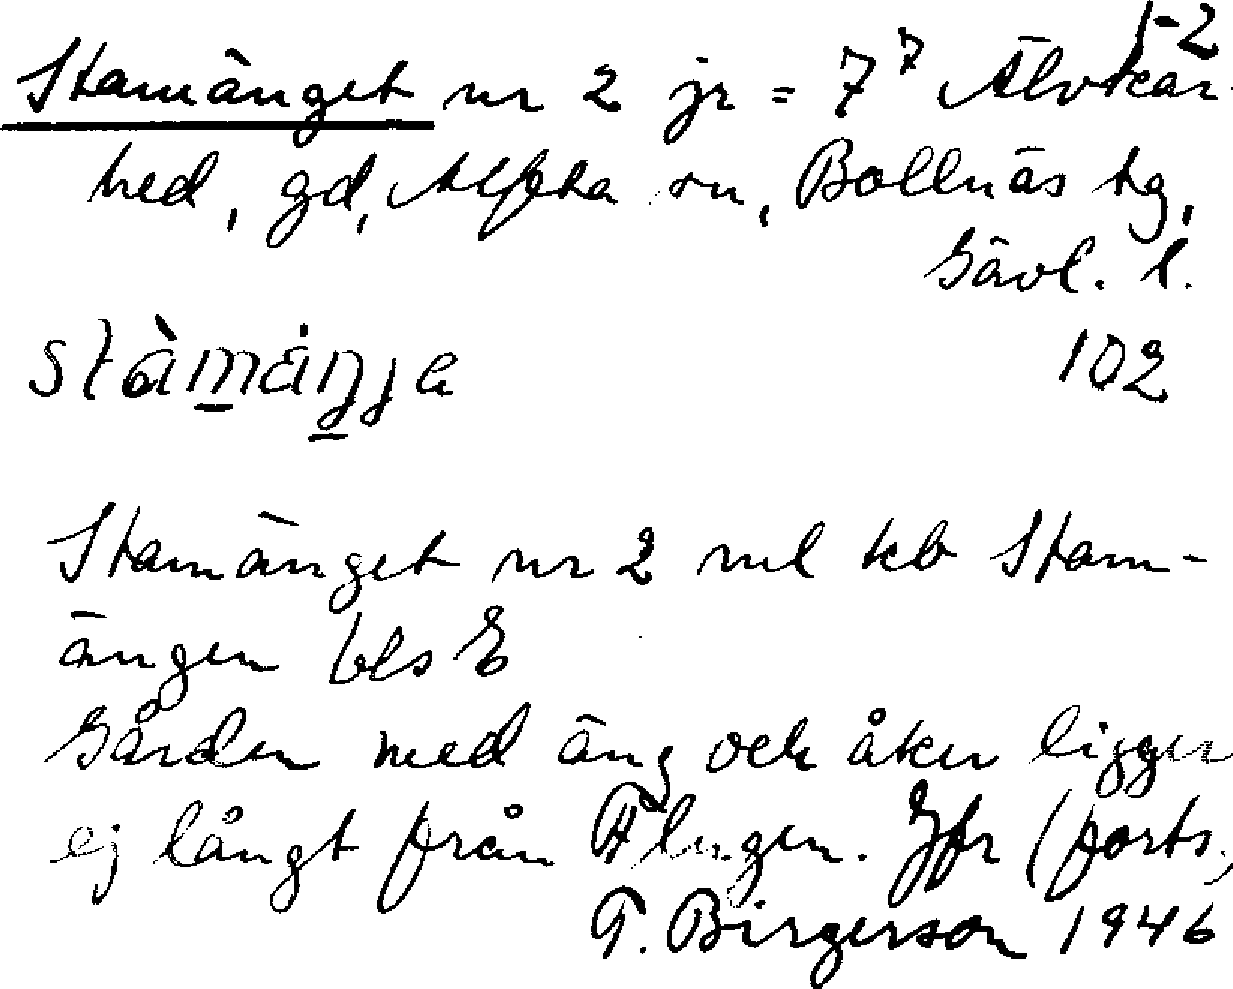 1-2
Stamänget nr 2 jr = 7⁷ Älvkar-
hed, gd, Alfta sn, Bollnäs tg,
Gävl. l.
102
Stamänget nr 2 ml kb Stam-
ängen bls E
Gården med äng och åker ligger
ej långt från Flugen. Jfr (forts.)
T. Birgerson 1946